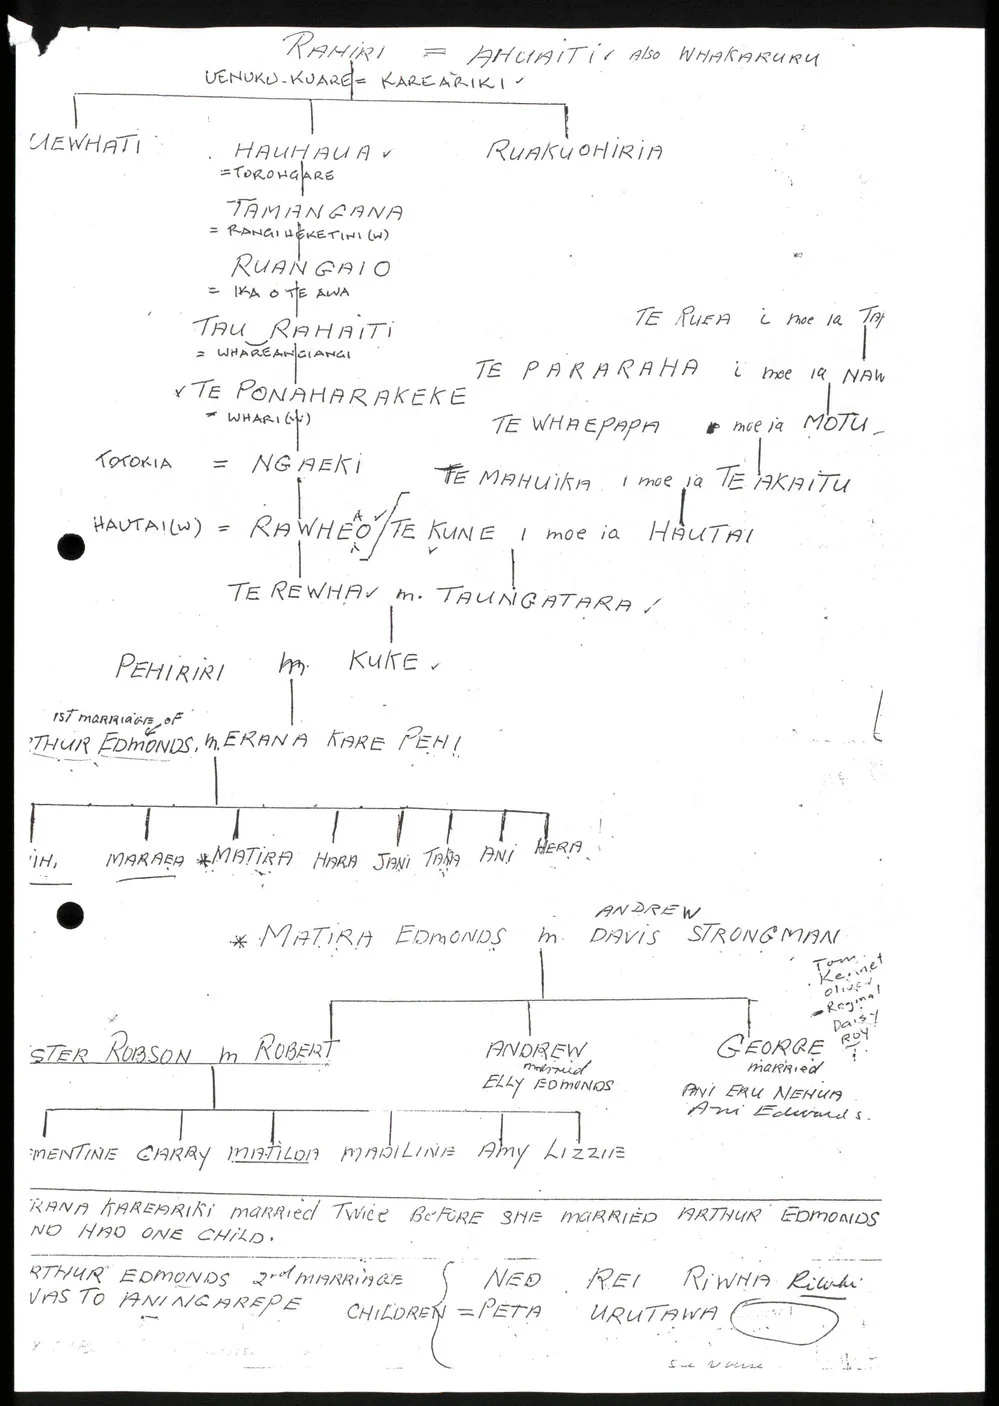 RAHIRI = AHUAITI ✓ also WHAKARURU
UENUKU-KUARE = KAREARIKI ✓
UEWHATI HAUHAUA ✓ RUAKUOHIRIA
= TORONGARE
TAMANGANA
= RANGIHEKETINI (W)
RUANGAIO
= IKA O TE AWA
TAU RAHAITI
= WHAREANGIANGI
✓ TE PONAHARAKEKE
= WHARI (W)
TE RUEA i moe ia
TE PARARAHA i moe ia NAW
TE WHAEPAPA moe ia MOTU
TOTOKIA = NGAEKI
TE MAHUIKA i moe ia TE AKAITU
HAUTAI (W) = RAWHEO ✓ / TE KUNE i moe ia HAUTAI
TE REWHA ✓ m. TAUNGATARA ✓
PEHIRIRI m. KUKE ✓
1ST MARRIAGE OF
THUR EDMONDS. m. ERANA KARE PEHI
IHI MARAEA *MATIRA HARA JANI TANA ANI HERA
ANDREW
* MATIRA EDMONDS m. DAVIS STRONGMAN
Tom
Kennet
Oliver
Reginal
Daisy
Roy
STER ROBSON m ROBERT ANDREW GEORGE
married married
ELLY EDMONDS ANI ERU NEHUA
Ani Edwards.
MENTINE CARRY MATILDA MADILINE AMY LIZZIE
RANA KAREARIKI married Twice BEFORE SHE MARRIED ARTHUR EDMONDS
ND HAD ONE CHILD.
RTHUR EDMONDS 2nd MARRIAGE
WAS TO ANI NGAREPE
CHILDREN = NED REI RIWHA Riwhi
PETA URUTAWA